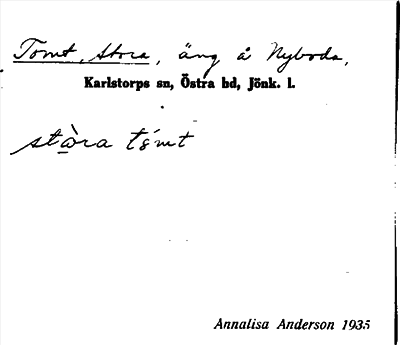 Tomt, stora, äng å Nyboda,
Karlstorps sn, Östra hd, Jönk. l.
stòra tómt
Annalisa Anderson 1935